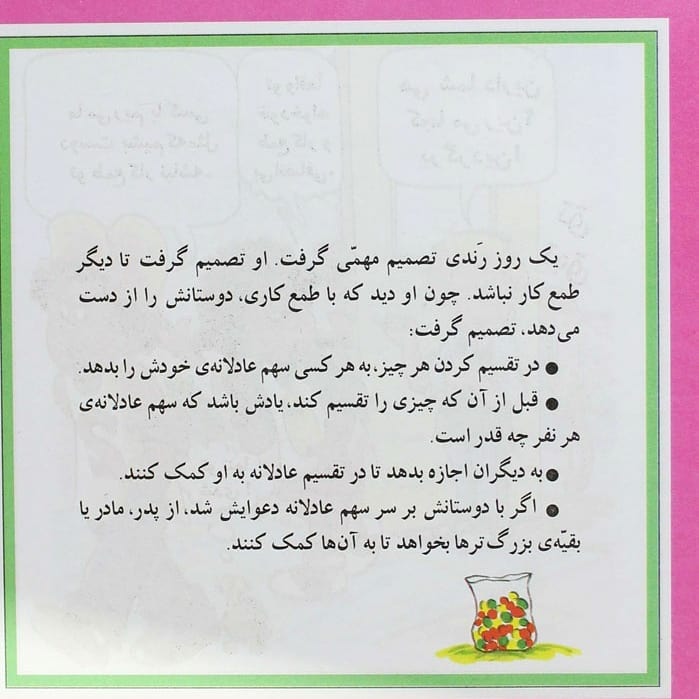 یک روز رَندی تصمیم مهمّی گرفت. او تصمیم گرفت تا دیگر
طمع‌کار نباشد. چون او دید که با طمع‌کاری، دوستانش را از دست
می‌دهد، تصمیم گرفت:
● در تقسیم کردن هر چیز، به هر کسی سهم عادلانه‌ی خودش را بدهد.
● قبل از آن که چیزی را تقسیم کند، یادش باشد که سهم عادلانه‌ی
هر نفر چه قدر است.
● به دیگران اجازه بدهد تا در تقسیم عادلانه به او کمک کنند.
● اگر با دوستانش بر سر سهم عادلانه دعوایش شد، از پدر، مادر یا
بقیّه‌ی بزرگ‌ترها بخواهد تا به آن‌ها کمک کنند.